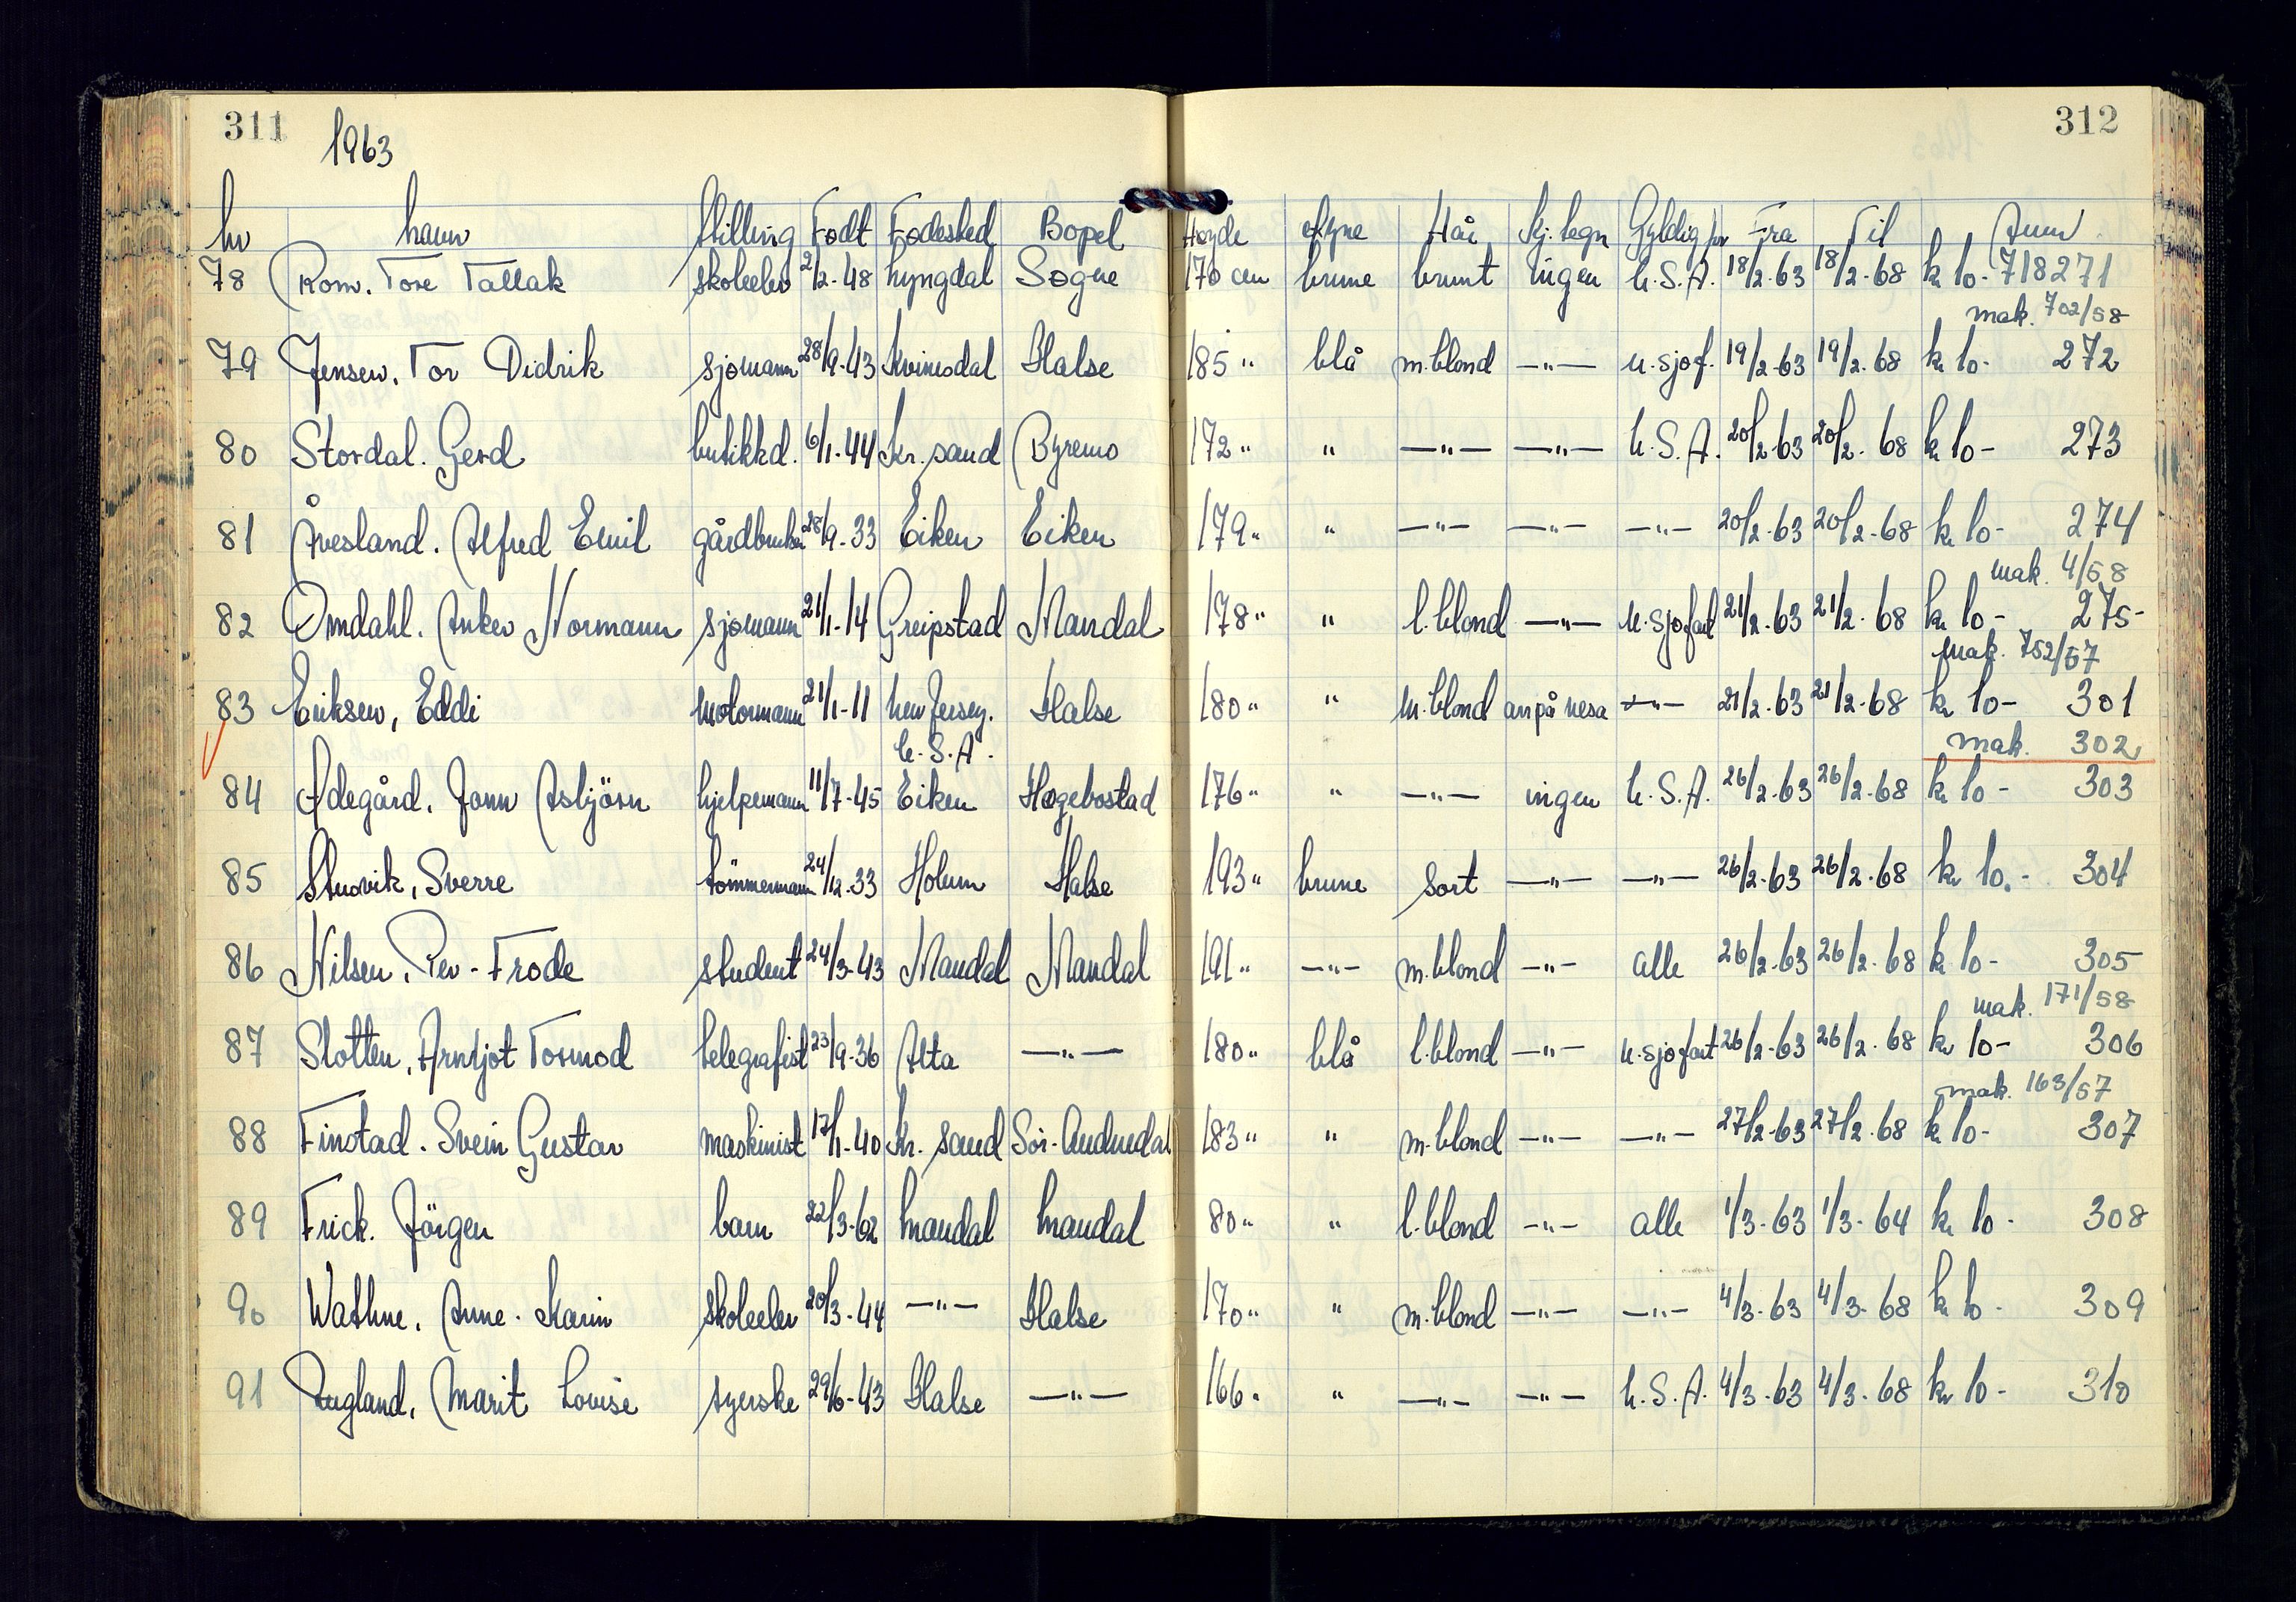 311 1963 312
Nr Navn Stilling Født Fødested Bopel Høyde Øyne Hår Kj. tegn Gyldig for Fra Til Anm
78 Rom. Tore Tallak skoleelev 2/2-48 Lyngdal Søgne 170 cm brune brunt ingen U.S.A. 18/2-63 18/2-68 kr 10- 718271
mak. 702/58
79 Jensen. Tor Didrik sjømann 28/9-43 Kvinesdal Halse 185 " blå m.blond —"— u.sjøf. 19/2-63 19/2-68 kr 10- 272
80 Stordal. Gerd butikkd. 6/1-44 Kr. sand Byremo 172 " " —"— —"— U.S.A. 20/2-63 20/2-68 kr 10- 273
81 Åvesland. Alfred Emil gårdbruker 28/9-33 Eiken Eiken 179 " " —"— —"— —"— 20/2-63 20/2-68 kr 10- 274
mak. 4/58
82 Omdahl. Anker Normann sjømann 21/1-14 Greipstad Mandal 178 " " l.blond —"— u.sjøfart 21/2-63 21/2-68 kr 10- 275-
mak. 752/57
83 Eriksen, Eddi motormann 21/1-11 New Jersey. Halse 180 " " m.blond arr på nesa —"— 21/2-63 21/2-68 kr 10- 301
U.S.A. mak. 302
84 Ødegård. Jonn Asbjörn hjelpemann 11/7-45 Eiken Hægebostad 176 " " —"— ingen U.S.A. 26/2-63 26/2-68 kr 10- 303
85 Stusvik, Sverre tömmermann 24/12-33 Holum Halse 193 " brune sort —"— —"— 26/2-63 26/2-68 kr 10.- 304
86 Nilsen, Per-Frode student 24/3-43 Mandal Mandal 191 " —"— m.blond —"— alle 26/2-63 26/2-68 kr 10- 305
mak. 171/58
87 Slotten, Arntjot Tormod telegrafist 23/9-36 Alta —"— 180 " blå l.blond —"— u.sjøfart 26/2-63 26/2-68 kr 10- 306
mak. 163/57
88 Finstad. Svein Gustav maskinist 17/1-40 Kr. sand Sör-Audnedal 183 " " m.blond —"— —"— 27/2-63 27/2-68 kr 10- 307
89 Frick. Jörgen barn 22/3-62 Mandal Mandal 80 " " l.blond —"— alle 1/3-63 1/3-64 kr 10- 308
90 Wathne. Anne-Karin skoleelev 20/3-44 —"— Halse 170 " " m.blond —"— —"— 4/3-63 4/3-68 kr 10- 309
91 Rugland, Marit Lovise syerske 29/6-43 Halse —"— 166 " " —"— —"— U.S.A. 4/3-63 4/3-68 kr 10- 310